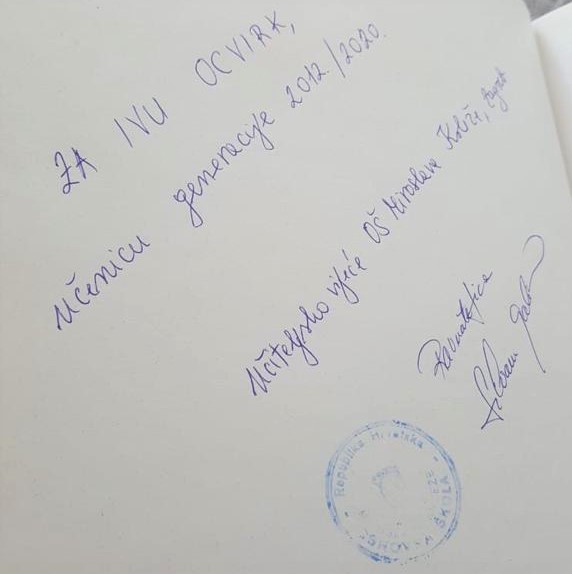 ZA IVU OCVIRK,
učenicu generacije 2012./2020.
Učiteljsko vijeće OŠ Miroslava Krleže, Zagreb
Ravnateljica
Republika Hrvatska
ŠKOLA